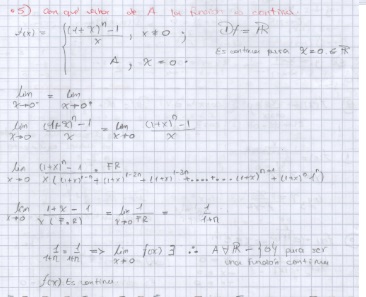 5) Con qué valor de A la función es continua.
f(x) = { (1+x)^n - 1 / x , x ≠ 0 ; Df = ℝ
A , x = 0 . Es continua para x = 0. ∈ ℝ
Lim x→0⁻ = Lim x→0⁺
Lim x→0 (1+x)^n - 1 / x = Lim x→0 (1+x)^n - 1 / x
Lim x→0 (1+x)^n - 1 . FR / x (
Lim x→0 1+x - 1 / x (F.R) = Lim x→0 1 / FR = 1 / 1+n
1/1+n = 1/1+n => Lim x→0 f(x) ∃ ∴ A ∀ ℝ - {0} para ser
una función continua
f(x) Es continua.